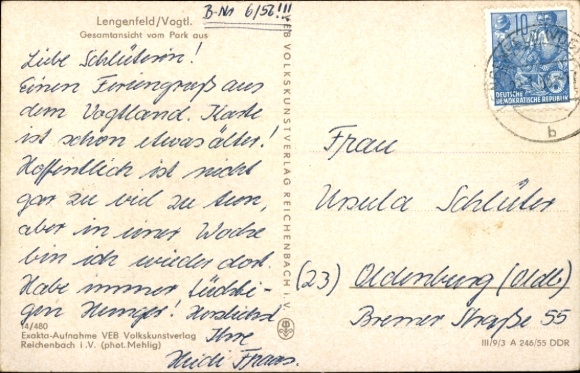 Lengenfeld/Vogtl.
Gesamtansicht vom Park aus
B-Nr 6/56!!!
Liebe Schlüterin!
Einen Feriengruß aus
dem Vogtland. Karte
ist schon etwas älter!
Hoffentlich ist nicht
gar zu viel zu tun,
aber in einer Woche
bin ich wieder dort.
Habe immer tüchti-
gen Hunger! Herzlichst
Ihre
Heidi
14/480
Exakta-Aufnahme VEB Volkskunstverlag
Reichenbach i. V. (phot. Mehlig)
VEB VOLKSKUNSTVERLAG REICHENBACH i. V.
10
DEUTSCHE
DEMOKRATISCHE REPUBLIK
b
Frau
Ursula Schlüter
(23) Oldenburg (Oldb)
Bremer Straße 55
III/9/3 A 246/55 DDR